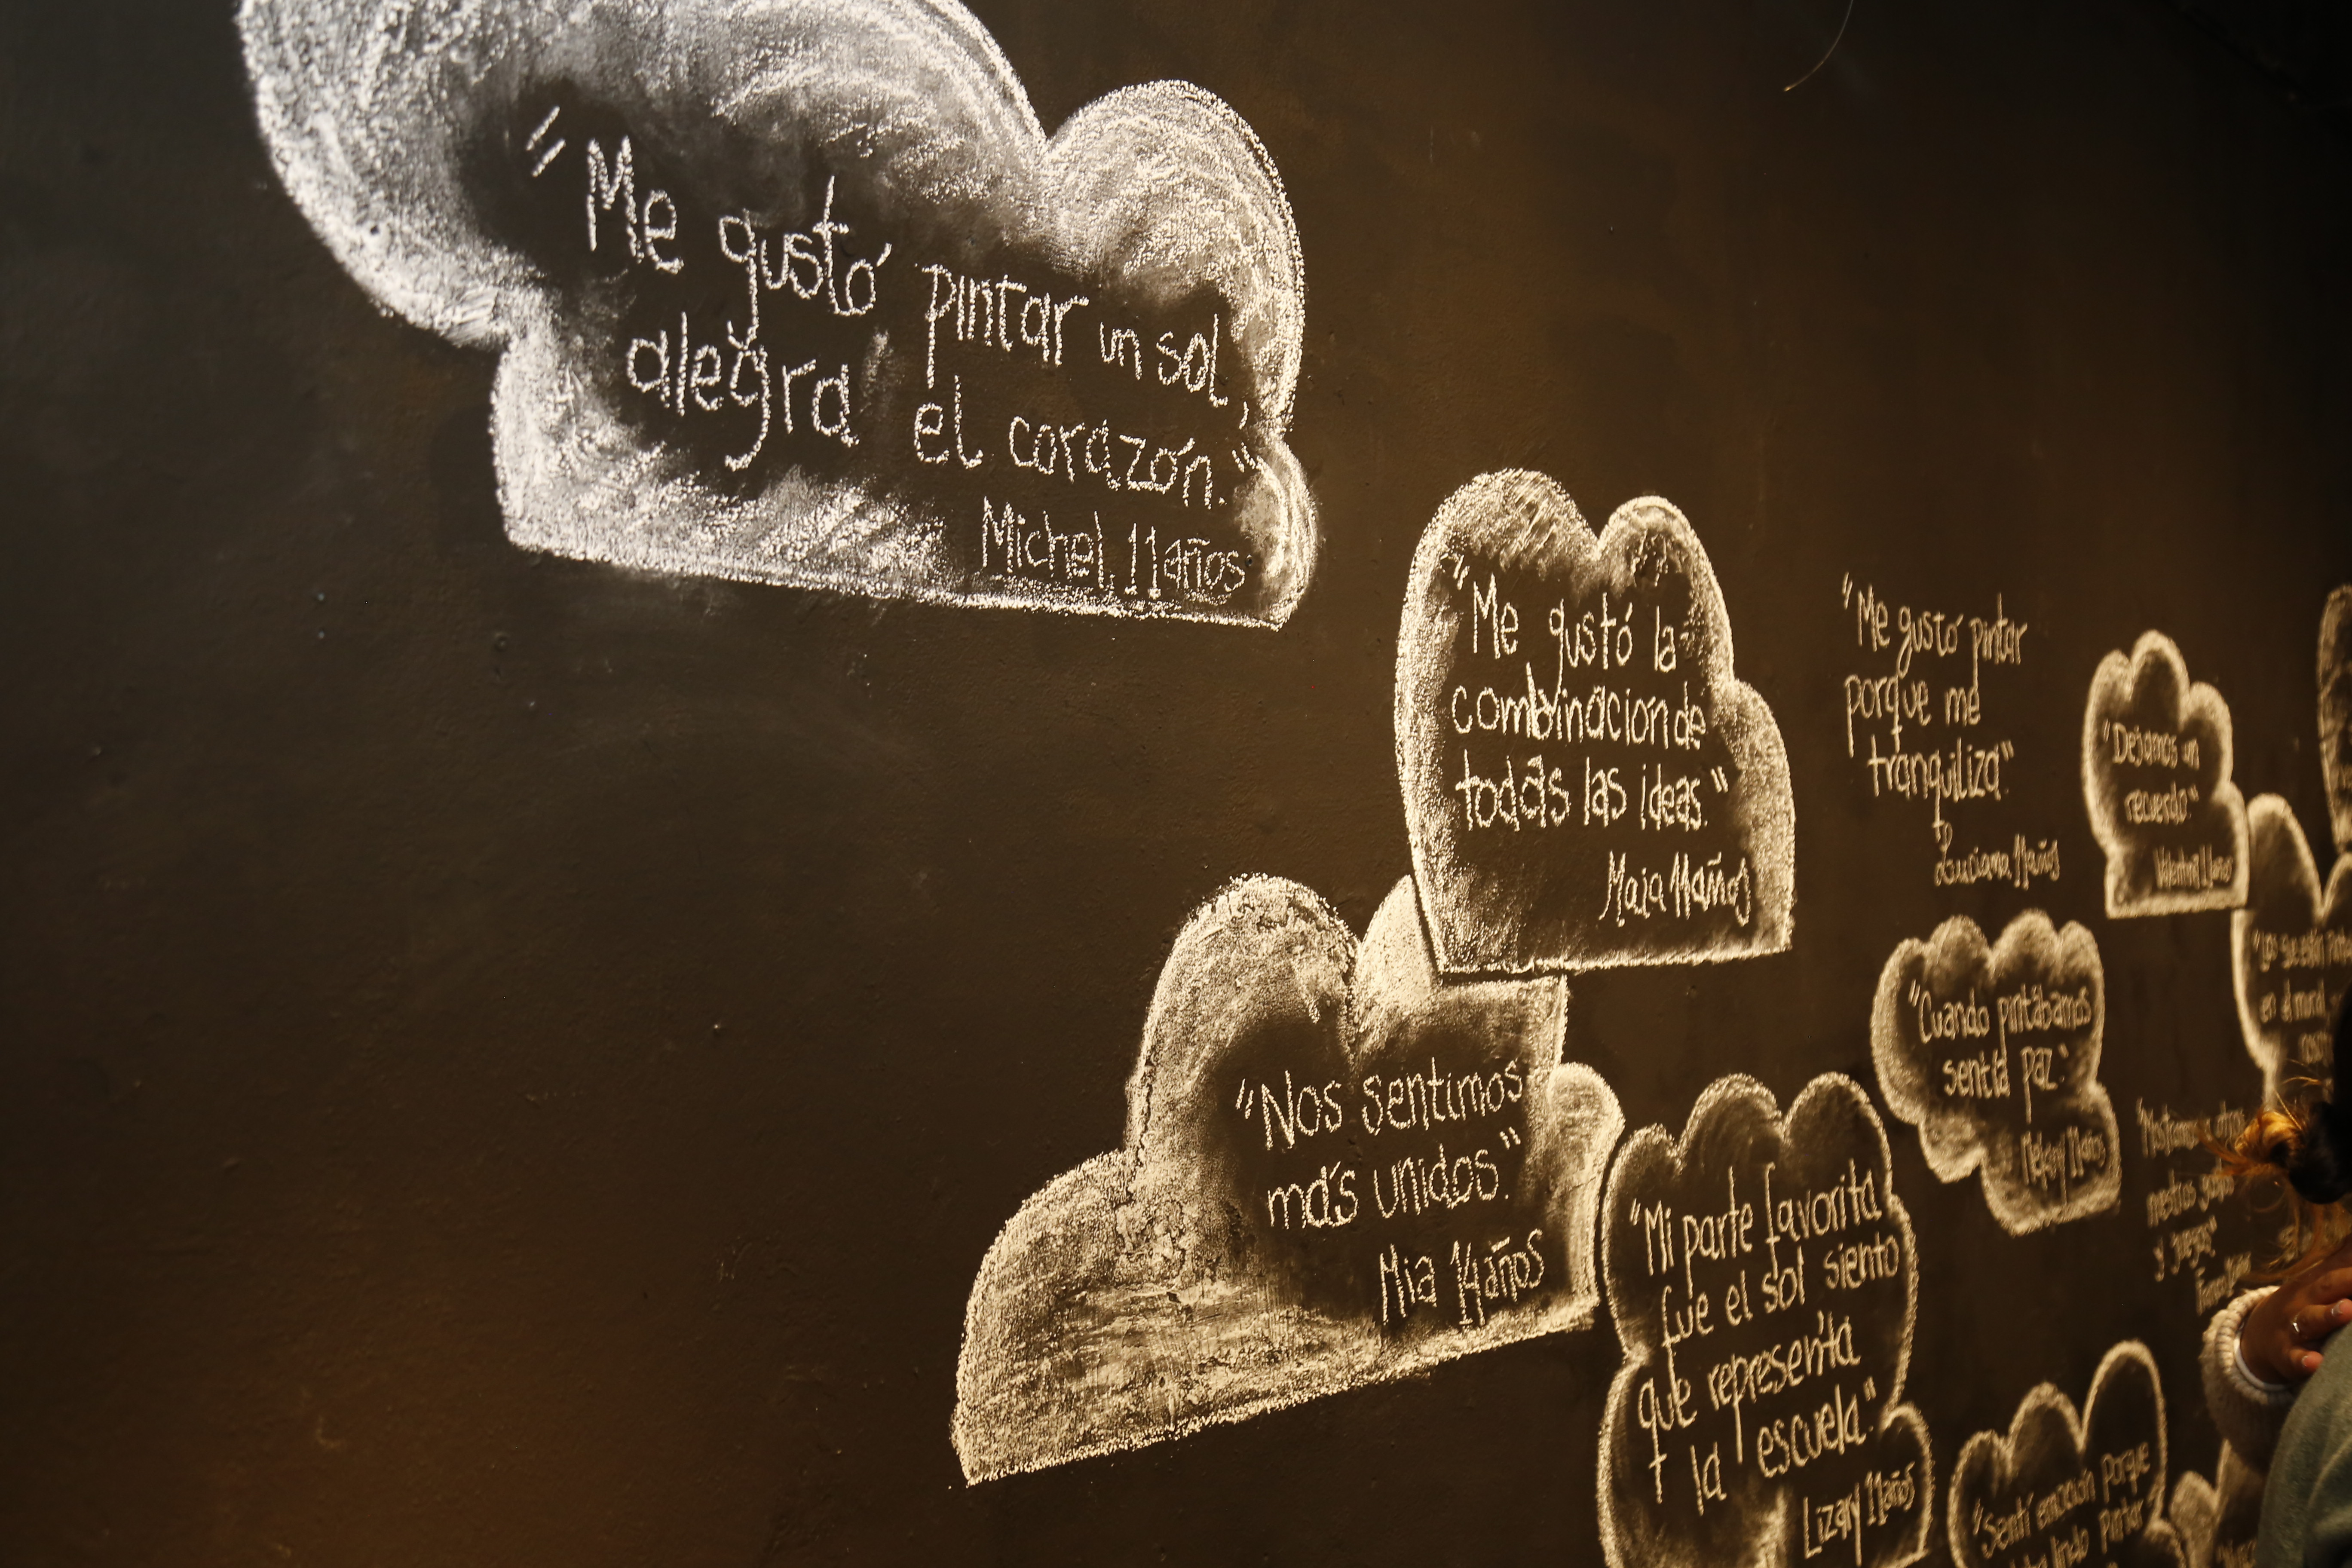 "Me gustó pintar un sol,
alegra el corazón."
Michel, 11 años
"Me gustó la
combinación de
todas las ideas."
Maia 11 años
"Me gustó pintar
porque me
tranquiliza"
Luciana 11 años
"Dejamos un
recuerdo"
"Nos sentimos
más unidos."
Mia 14 años
"Cuando pintábamos
sentía paz."
11 años
"Mi parte favorita
fue el sol siento
que representa
la escuela."
Lizay 11 años
en el mural
y juegos"
"Sentí emoción porque
lindo pintar